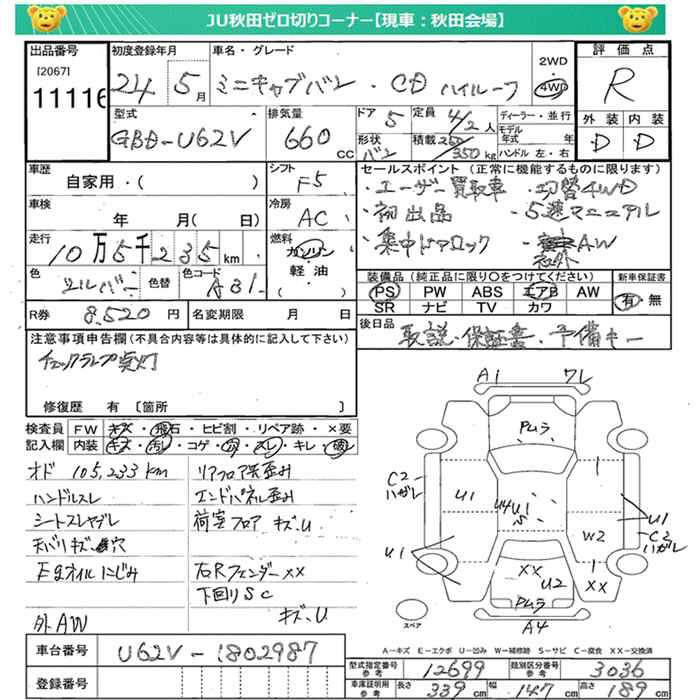 JU秋田ゼロ切りコーナー【現車：秋田会場】
出品番号
[2067]
11116
初度登録年月
24 5月
車名・グレード
ミニキャブバン・CD ハイルーフ
2WD
4WD
評価点
R
外装 内装
D D
型式
GBD-U62V
排気量
660 CC
ドア 5
形状 バン
定員 4/2 人
積載 250/350kg
ディーラー・並行
モデル年式 年
ハンドル 左・右
車歴
自家用・( )
シフト
F5
車検
年 月( 日)
冷房
AC
走行
10万5千235km
燃料
ガソリン
軽油
・( )
色
シルバー
色替
色コード
A31
R券 8,520円
名変期限 月 日
セールスポイント (正常に機能するものに限ります)
・ユーザー買取車 ・切替4WD
・初出品 ・5速マニュアル
・集中ドアロック ・社外AW
装備品(純正品に限り○をつけてください)
PS PW ABS エアB AW
SR ナビ TV カワ
新車保証書
有・無
後日品
取説・保証書・予備キー
注意事項申告欄(不具合内容等は具体的に記入して下さい)
チェックランプ点灯
修復歴 有 [箇所 ]
検査員記入欄
FW キズ・飛石・ヒビ割・リペア跡・×要
内装 キズ・汚レ・コゲ・穴・スレ・キレ・破レ
オド 105,233km
ハンドルスレ
シートスレヤブレ
天バリキズ、穴
E gオイルにじみ
外AW
リアフロア突歪み
エンドパネル歪み
荷室フロア キズ、U
右Rフェンダー××
下回りSC
キズ、U
A1 フレ
Pムラ
C2 ハガレ
U1
U4 U1
S
U1
C2 ハガレ
W2
U1
XX
U2
XX
Pムラ
A4
スペア
A－キズ E－エクボ U－凹み W－補修跡 S－サビ C－腐食 XX－交換済
車台番号 U62V-1802987
登録番号
型式指定番号 参考 12699
類別区分番号 参考 3036
車庫証明用 参考 長さ 339cm 幅 147cm 高さ 189cm